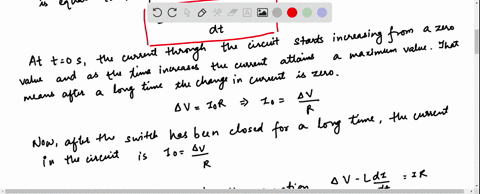 is equal
dt
At t=0 s, the current through the circuit starts increasing from a zero
value and as the time increases the current attains a maximum value. That
means after a long time the change in current is zero.
ΔV = I₀R ⇒ I₀ = ΔV/R
Now, after the switch has been closed for a long time, the current
in the circuit is I₀ = ΔV/R
ΔV - L dI/dt = IR